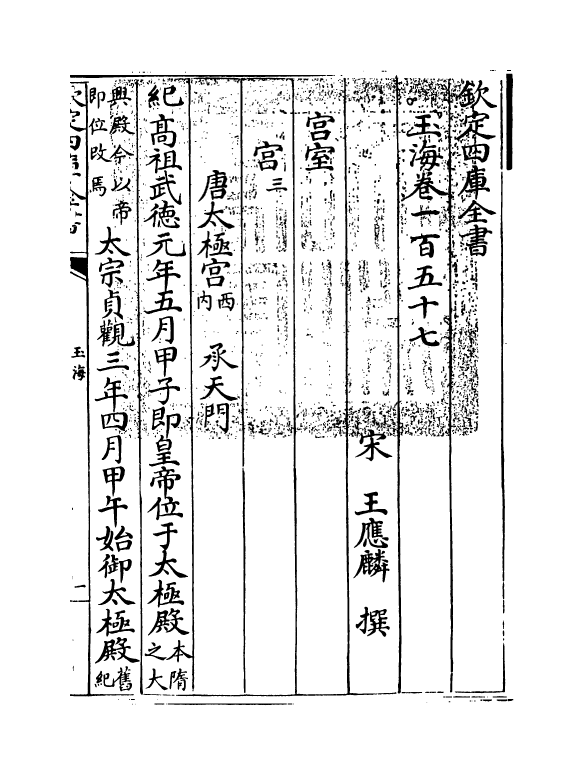 欽定四庫全書
玉海卷一百五十七
宋 王應麟 撰
宮室
宮三
唐太極宮西內 承天門
紀高祖武徳元年五月甲子即皇帝位于太極殿本隋之大
興殿今以帝即位改焉太宗貞觀三年四月甲午始御太極殿舊紀
欽定四庫全書
玉海
一